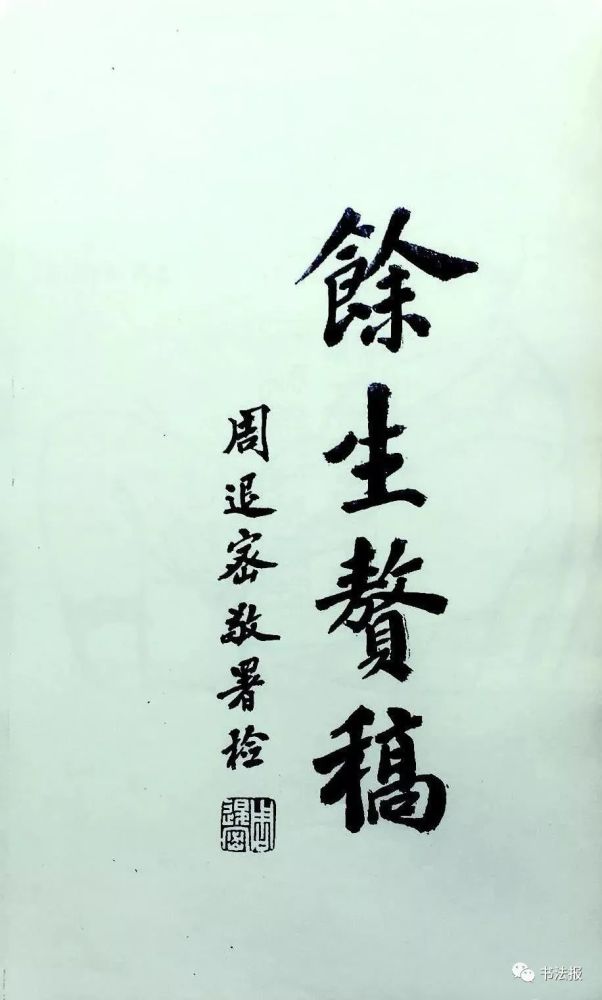 餘生贅稿
周退密敬署檢
周退密
书法报